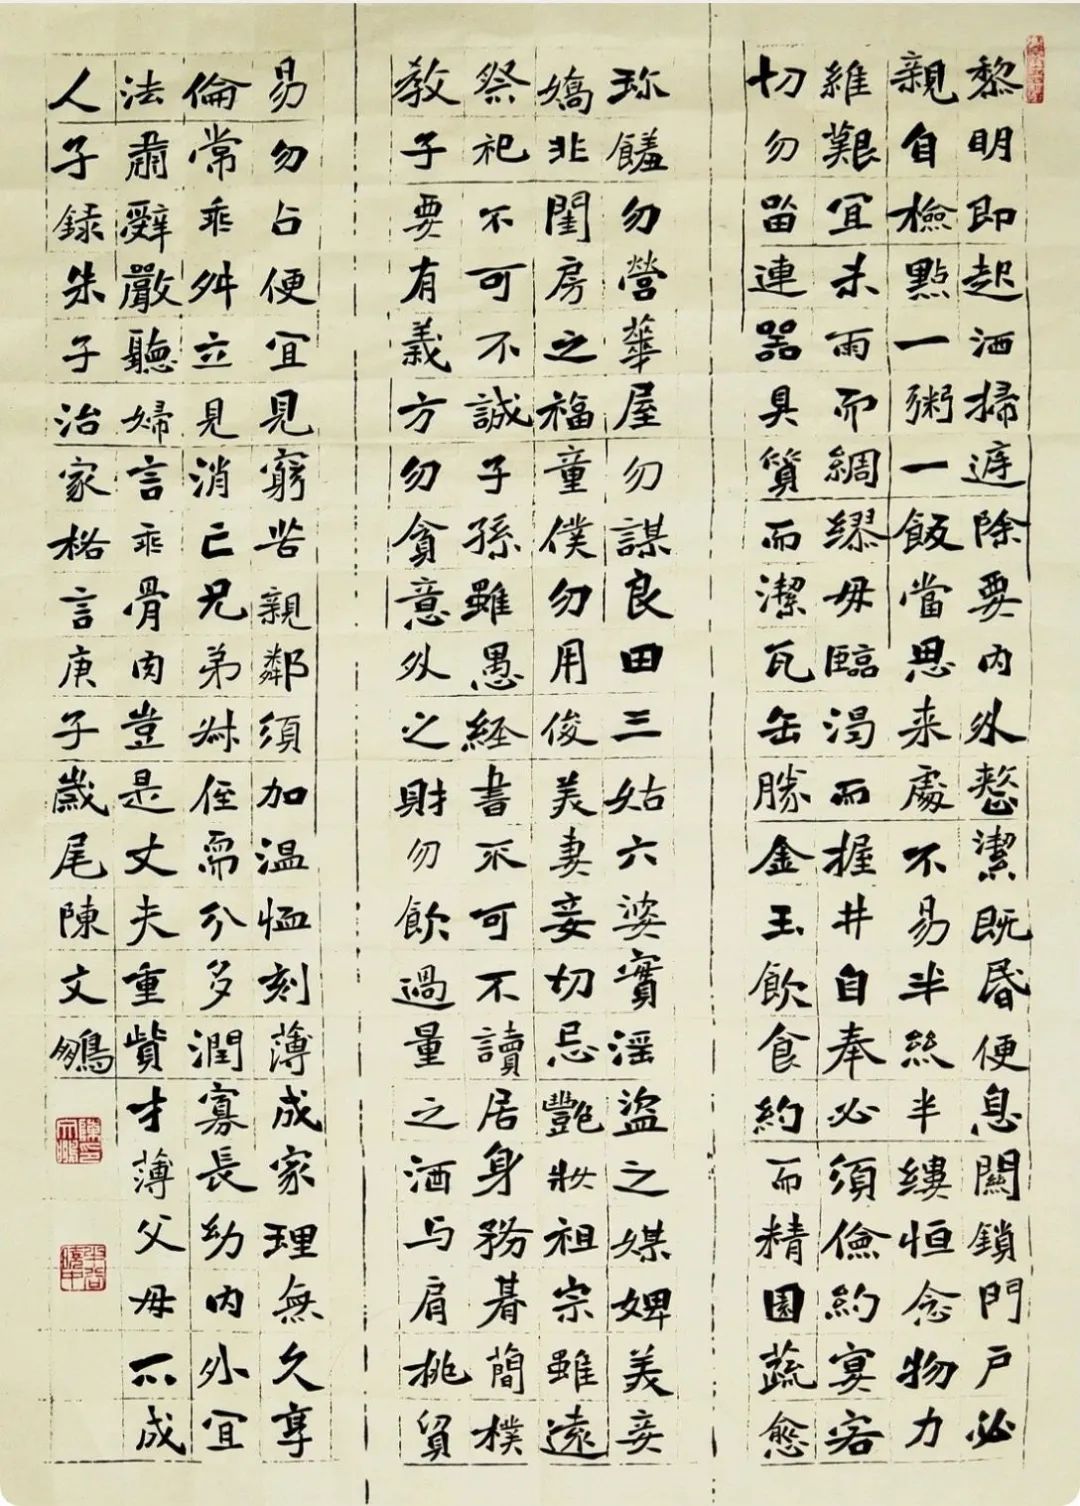 黎明即起洒掃庭除要内外整潔既昏便息關鎖門戶必
親自檢點一粥一飯當思来處不易半絲半縷恒念物力
維艱宜未雨而綢繆毋臨渴而握井自奉必須儉約宴客
切勿留連器具質而潔瓦缶勝金玉飲食約而精園蔬愈
珎饈勿營華屋勿謀良田三姑六婆實淫盗之媒婢美妾
嬌非閨房之福童僕勿用俊美妻妾切忌艷妝祖宗雖遠
祭祀不可不誠子孫雖愚経書不可不讀居身務朞簡樸
教子要有義方勿貪意外之財勿飲過量之酒与肩挑貿
易勿占便宜見窮苦親鄰須加温恤刻薄成家理無久享
倫常乖舛立見消亡兄弟叔侄需分多潤寡長幼内外宜
法肅辭嚴聽婦言乖骨肉豈是丈夫重貲才薄父母不成
人子録朱子治家格言庚子歲尾陳文鵬